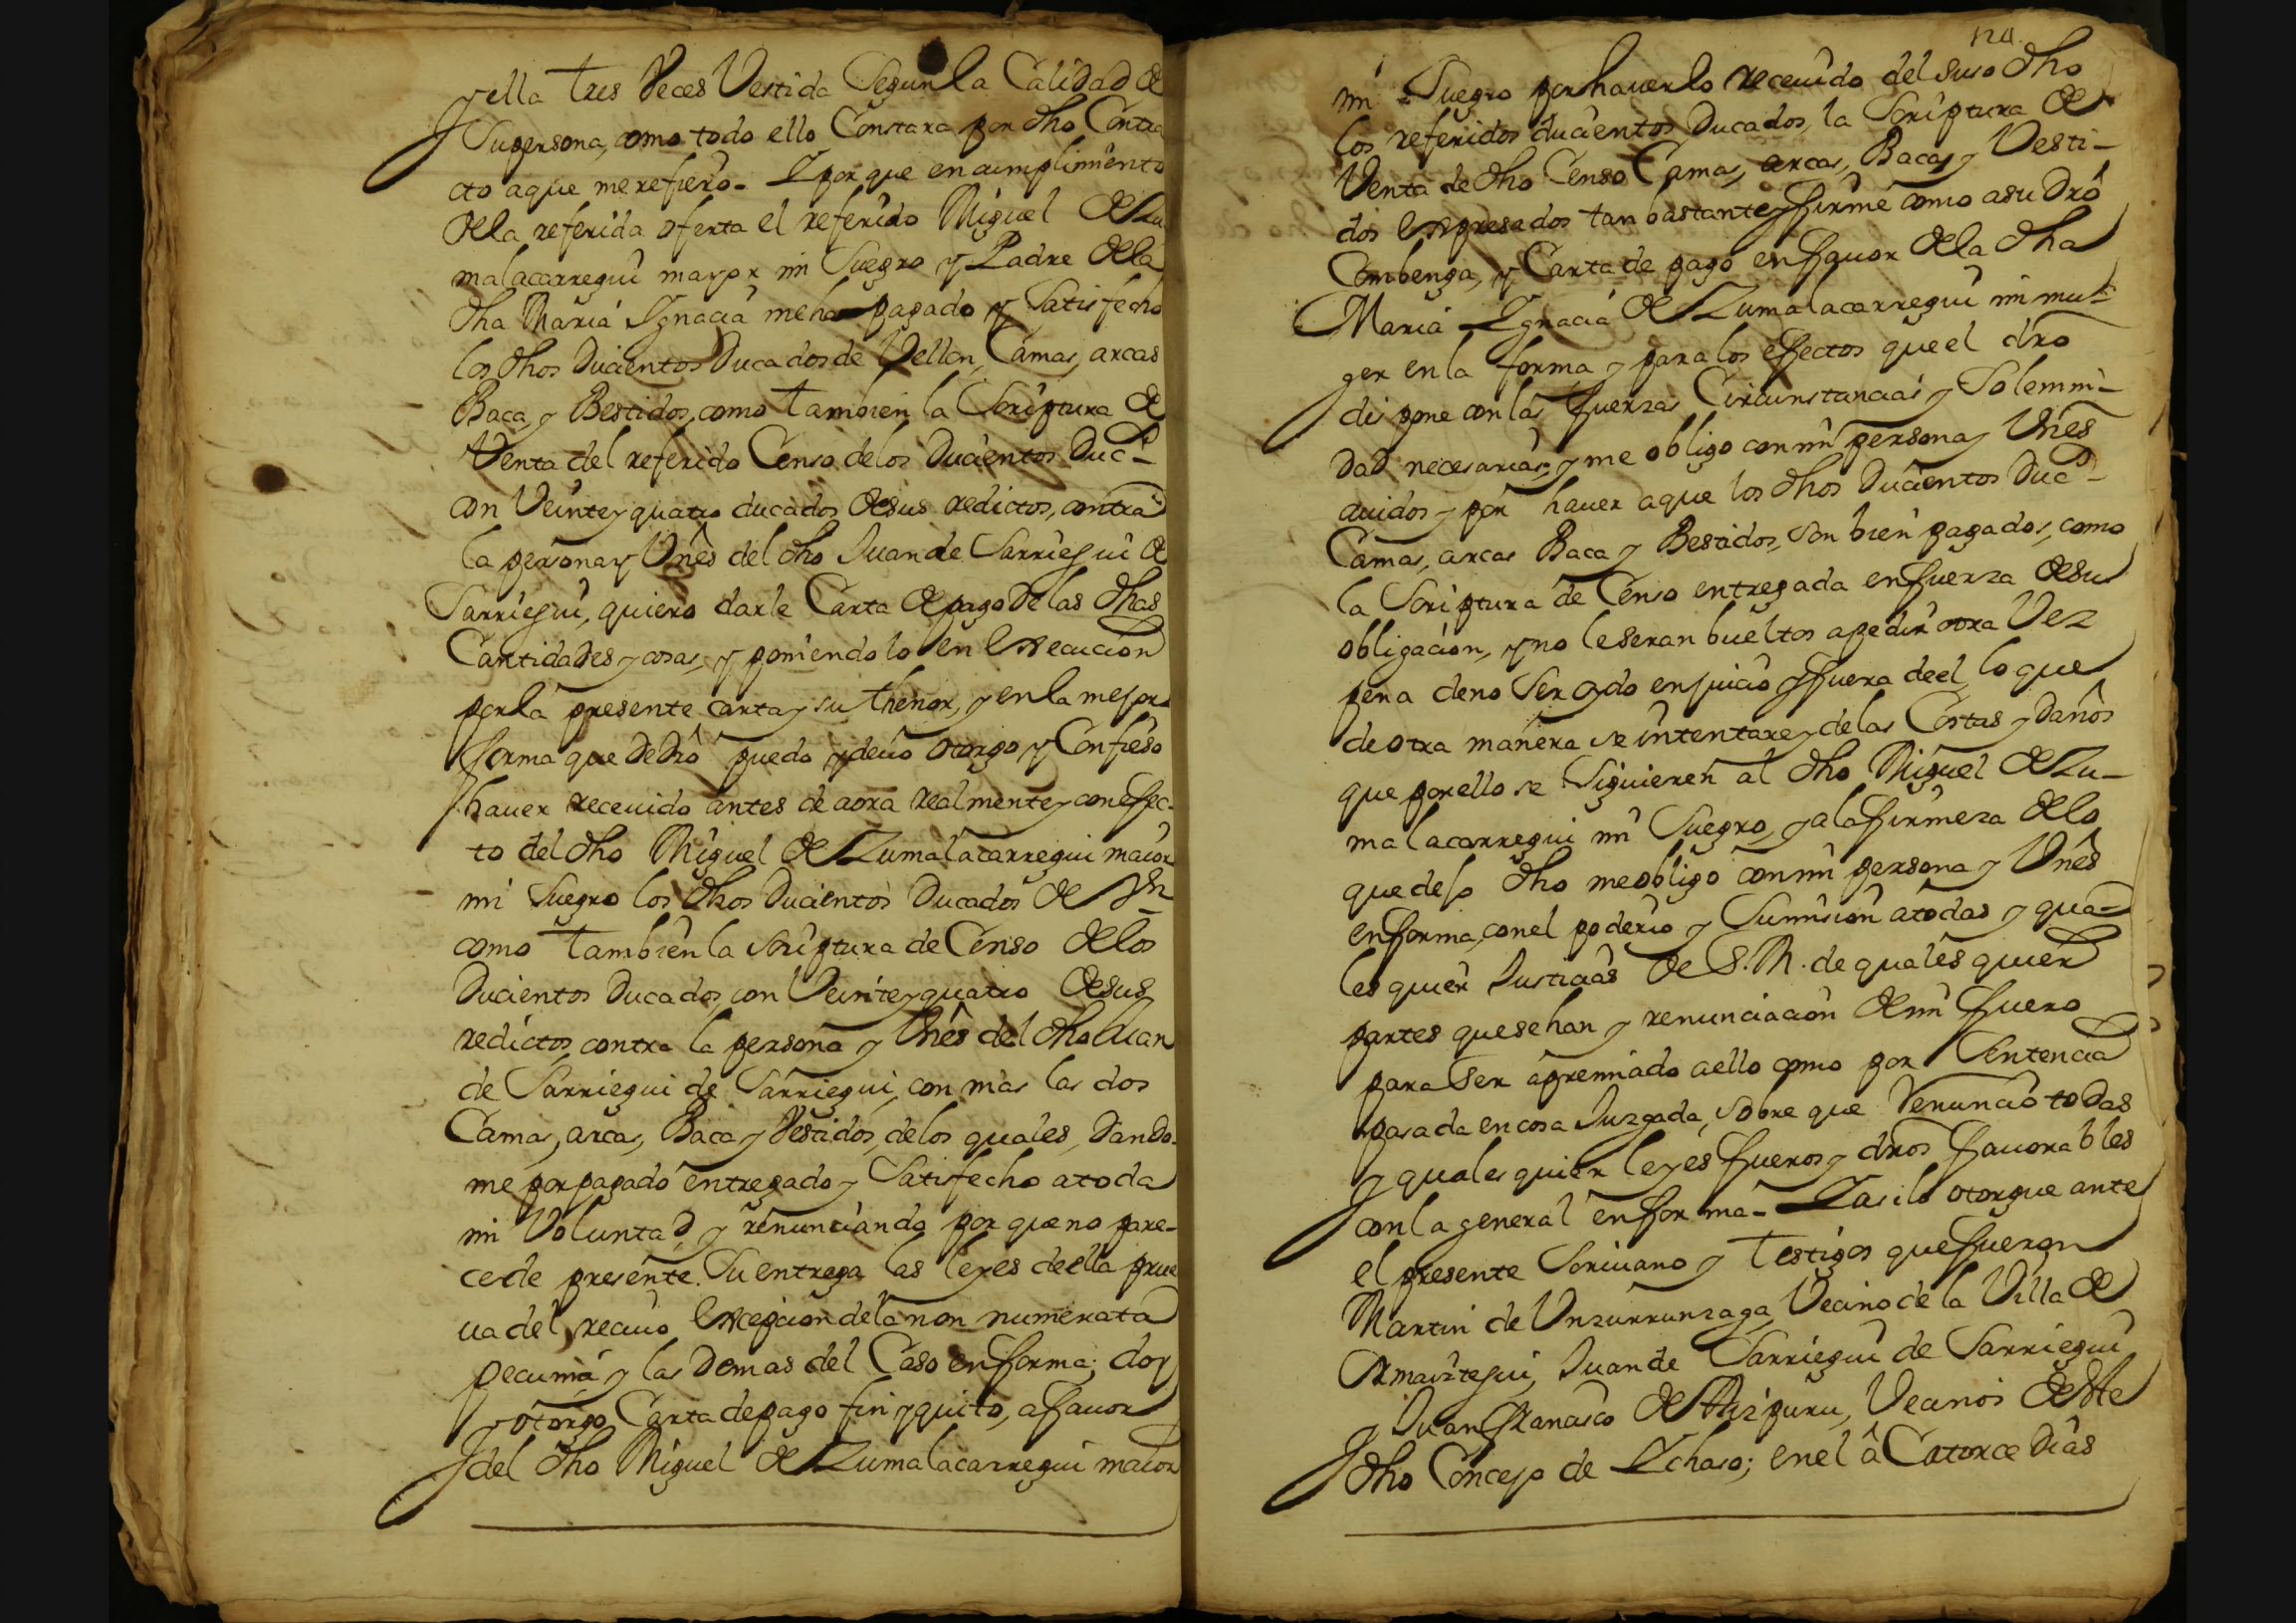 y ella tres Veces Vestida Segun la Calidad de
Supersona, como todo ello Constara por dho Contra
cto aque merefiero. Y por que encumplimiento
dela referida oferta el referido Miguel de Zu
malacarregui mayor mi Suegro y Padre dela
dha Maria Ignacia meha pagado y Satisfecho
los dhos Ducientos Ducados de Vellon, Camas, arcas
Baca y Bestidos, como tambien la Scriptura de
Venta del referido Censo delos Ducientos Duc.
con Veinte y quatro ducados desus redictos, contra
la persona y Vnes del dho Juan de Sarriegui de
Sarriegui, quiero darle Carta de pago de las dhas
Cantidades y cosas, y poniendolo en Execucion
por la presente carta y su thenor, y en la mejor
forma que de dro puedo y deuo otorgo y Confieso
hauer receuido antes de aora realmente y con efec-
to del dho Miguel de Zumalacarregui maior
mi Suegro los dhos Ducientos Ducados de Vn
como tambien la Scriptura de Censo delos
Ducientos Ducados, con Veinte y quatro desus
redictos, contra la persona y Vnes del dho Juan
de Sarriegui de Sarriegui, con mas las dos
Camas, arcas, Baca y Vestidos, delos quales, Dando-
me por pagado entregado y Satisfecho a toda
mi Voluntad y renunciando por que no pare-
ce de presente Su entrega las leyes de ella prue
ua del reciuo Excepcion dela non numerata
pecunia y las Demas del Caso en forma; doy
y otorgo Carta depago fin y quito, a fauor
del dho Miguel de Zumalacarregui maior
124.
mi Suegro por hauerlo receuido del suso dho
los referidos ducientos Ducados, la Scriptura de
Venta de dho Censo Camas, arcas, Baca y Vesti-
dos Expresados tan bastante y firme como a su Dro
Combenga, y Carta de pago en fauor dela dha
Maria Ygnacia de Zumalacarregui mi mu-
ger en la forma, y para los efectos que el dro
dispone con las fuerzas Circunstancias y Solemni-
dad necesarias, y me obligo con mi persona y Vnes
auidos y por hauer aque los dhos Ducientos Duc.
Camas, arcas Baca y Bestidos, son bien pagados, como
la Scriptura de Censo entregada en fuerza desu
obligacion, y no le seran bueltos apedir otra Vez
pena deno Ser oydo en juicio y fuera de el, lo que
de otra manera se intentare y delas Costas y Daños
que por ello se Siguieren al dho Miguel de Zu-
malacarregui mi Suegro, y ala firmeza de lo
que dejo dho meobligo con mi persona y Vnes
en forma, con el poderio y Sumision a todas y qua-
les quier Justicias de S. M. de quales quier
partes que sehan y renunciacion de mi fuero
para Ser apremiado aello como por Sentencia
pasada en cosa Juzgada, sobre que Renuncio todas
y quales quier leyes fueros y dros fauorables
con la general en forma. Y asi lo otorgue ante
el presente Scriuano y testigos que fueron
Martin de Vnzurrunzaga, Vecino de la Villa de
Amaiztegui, Juan de Sarriegui de Sarriegui
y Juan Francisco de Aizpuru, Vecinos deste
dho Concejo de Ychaso; en el â Catorce Dias